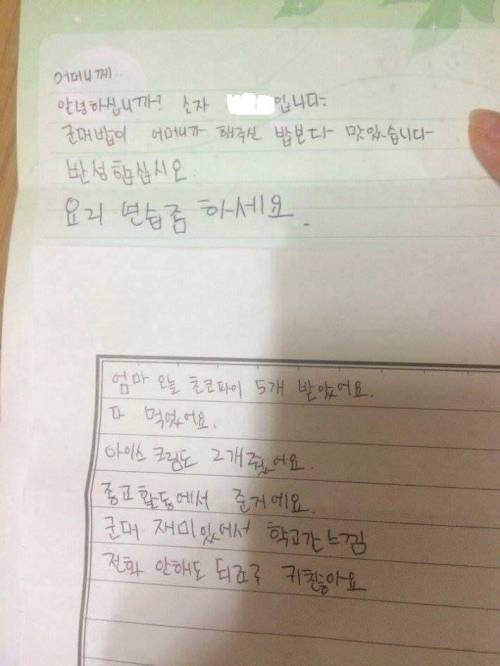 어머니께..
안녕하십니까? 소자 입니다.
군대밥이 어머니가 해주신 밥보다 맛있습니다
반성하십시오
요리 연습좀 하세요.
엄마 오늘 초코파이 5개 받았어요.
다 먹었어요.
아이스크림도 2개줬어요.
종교활동에서 준거에요.
군대 재미있어서 학교간느낌
전화 안해도 되죠? 귀찮아요